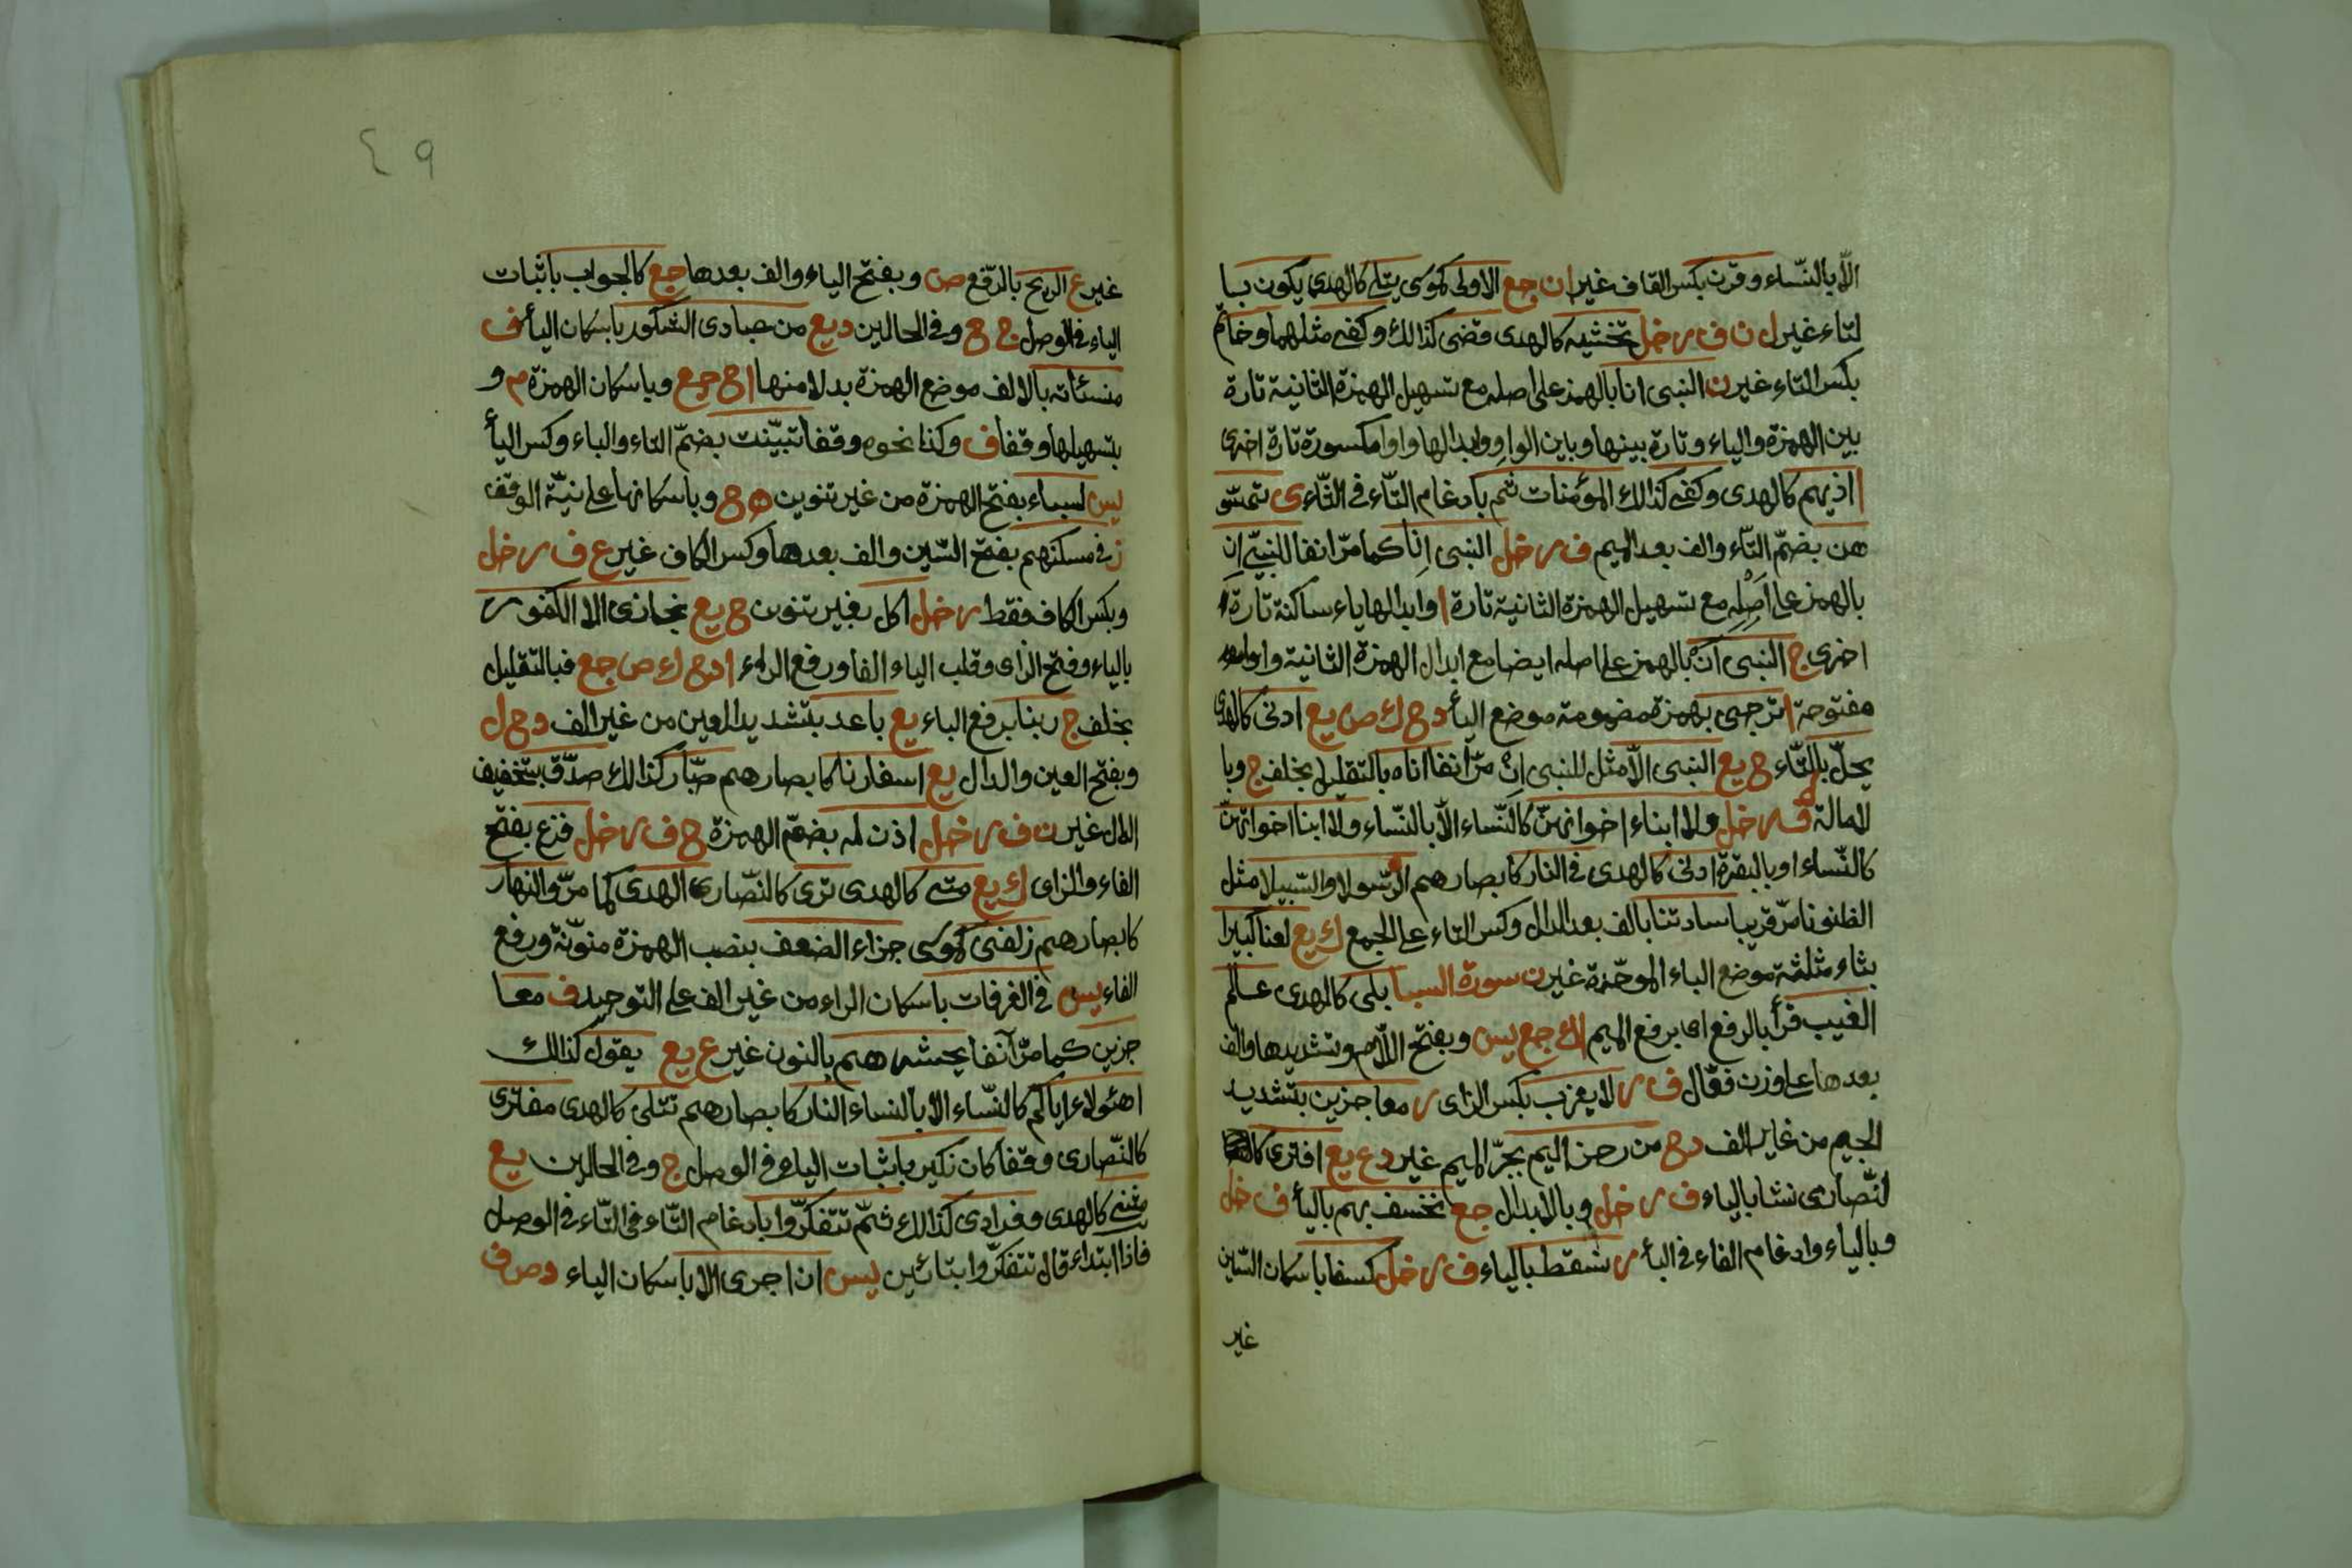 الّا بالنّساء وقرن بكسر القاف غير ان جع الاولى كموسى يتلى كالهدى يكون بيا
لتاء غير ل ن ف ر خل تخشيه كالهدى قضى كذالك وكفى مثلهما وخاتم
بكسر التاء غير ن النبى انا بالهمز على اصله مع تسهيل الهمزة الثانية تارة
بين الهمزة والياء وتارة بينها وبين الواو وابدالها واوا مكسورة تارة اخرى
ا اذيهم كالهدى وكفى كذالك المؤمنات ثم بادغام التّاء فى الثّاء ى تمسّو
هن بضمّ التّاء والف بعد الميم ف ر خل النبى انا كما مرّ انفا للنبىّ ان
بالهمز على اصله مع تسهيل الهمزة الثانية تارة ا وابدالها ياء ساكنة تارة
اخرى ج النبى ان بالهمز على اصله ايضا مع ابدال الهمزة الثانية واوا
مفتوحة ا ترجى بهمزة مضمومة موضع اليأ د ح ك ص يع ادنى كالهدى
يحلّ بالتّاء ح يع النبى الّا مثل للنبى ان مرّ انفا اناه بالتقليل بخلف ج وبا
لامالة ف ر خل ولا ابناء اخوانهنّ كالنّساء الّا بالنّساء ولا ابنا اخواتهنّ
كالنّساء او بالبقرة ادنى كالهدى فى النار كابصارهم الرّسولا والسّبيلا مثل
الظنونا مرّ قريبا سادتنا بالف بعد الدال وكسر التاء على الجمع ك يع لعنا كبيرا
بثاء مثلثة موضع الباء الموحّدة غير ن سورة السبا بلى كالهدى عالم
الغيب قرأ بالرفع اى برفع الميم اك جع يس وبفتح اللّام وتشديدها والف
بعدها على وزن فعّال ف ر لا يعزب بكسر الزاى ر معاجزين بتشديد
الجيم من غير الف د ح من رجز اليم بجرّ الميم غير د ع يع افترى كا
لنّصارى نشا بالياء ف ر خل وبالابدال جع نخسف بهم باليأ ف خل
وبالياء وادغام الفاء فى البأ ر نسقط بالياء ف ر خل كسفا باسكان السّين
غير
٤٩
غير ع الريح بالرّفع ص وبفتح الياء والف بعدها جع كالجواب باثبات
الياء فى الوصل ج ح وفى الحالين د يع من عبادى الشكور باسكان اليأ ف
منسئاته بالالف موضع الهمزة بدلا منها ا ح جع وباسكان الهمزة م و
بتسهيلها وقفا ف وكذا نحوه وقفا تبيّنت بضمّ التاء والباء وكسر اليأ
يس لسباء بفتح الهمزة من غير تنوين ه ح وباسكانها على نيّة الوقف
ز فى مسكنهم بفتح السّين والف بعدها وكسر الكاف غير ع ف ر خل
وبكسر الكاف فقط ر خل اكل بغير تنوين ح يع نجازى الا الكفور
بالياء وفتح الزاى وقلب الياء الفا ورفع الراء ا د ح ك ص جع فبالتقليل
بخلف ج ربنا برفع الباء يع باعد بتشديد العين من غير الف د ح ل
وبفتح العين والدال يع اسفارنا كابصارهم صبّار كذالك صدّق بتخفيف
الدال غير ن ف ر خل اذن له بضمّ الهمزة ح ف ر خل فزع بفتح
الفاء والزاى ك يع متى كالهدى ترى كالنّصارى الهدى كما مرّ والنهار
كابصارهم زلفى كموسى جزاء الضعف بنصب الهمزة منوّنة ورفع
الفاء يس فى الغرفات باسكان الراء من غير الف على التوحيد ف معا
جزين كما مرّ آنفا يحشرهم بالنون غير ع يع يقول كذالك
اهئولاء اياكم كالنّساء الا بالنساء النار كابصارهم تتلى كالهدى مفترى
كالنّصارى وقفا كان نكير باثبات الياء فى الوصل ج وفى الحالين يع
مثنى كالهدى وفرادى كذالك ثمّ تتفكّروا بادغام التّاء فى التّاء فى الوصل
فاذا ابتداء قال تتفكّروا بتائين يس ان اجرى الا باسكان الياء د ص ف